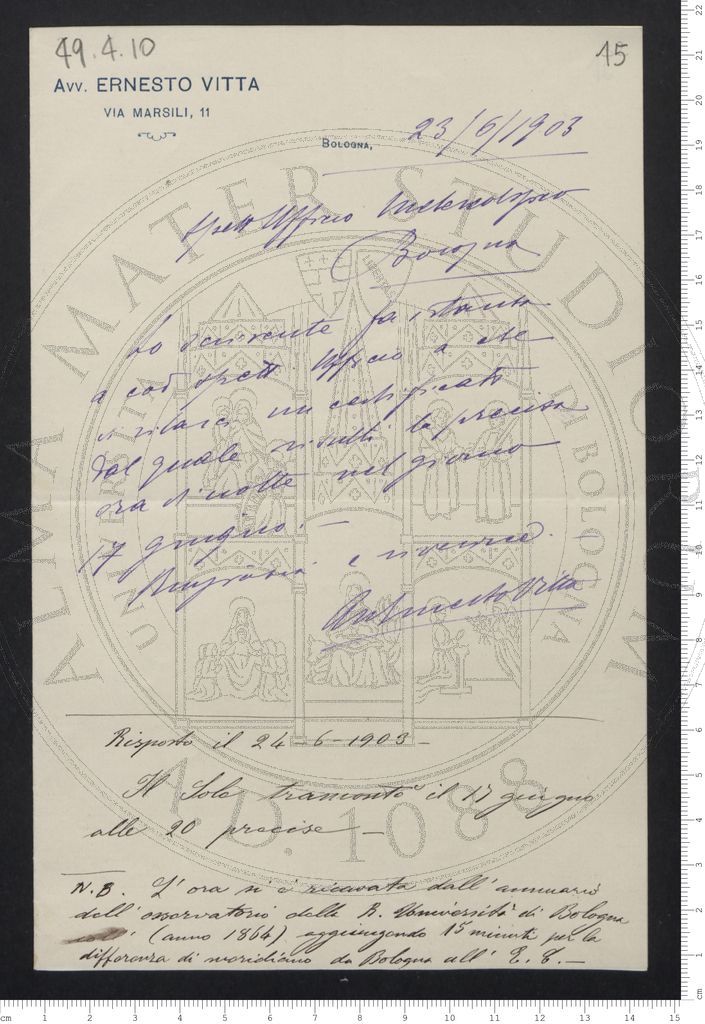 49.4.10
15
Avv. ERNESTO VITTA
VIA MARSILI, 11
BOLOGNA, 23/6/1903
Spett Ufficio Meteorologico
Bologna
Lo scrivente fa istanza
a cod. spett. Ufficio a che
si rilasci un certificato
dal quale risulti la precisa
ora di notte nel giorno
17 giugno. —
Ringrazia e riverisce.
Avv Ernesto Vitta
Risposto il 24-6-1903 –
Il Sole tramontò il 17 giugno
alle 20 precise –
N.B. L'ora si è ricavata dall'annuario
dell'osservatorio della R. Università di Bologna
(anno 1864) aggiungendo 15 minuti per la
differenza di meridiano da Bologna all' E. C. –
ALMA MATER STUDIORUM
UNIVERSITÀ DI BOLOGNA
A.D. 1088